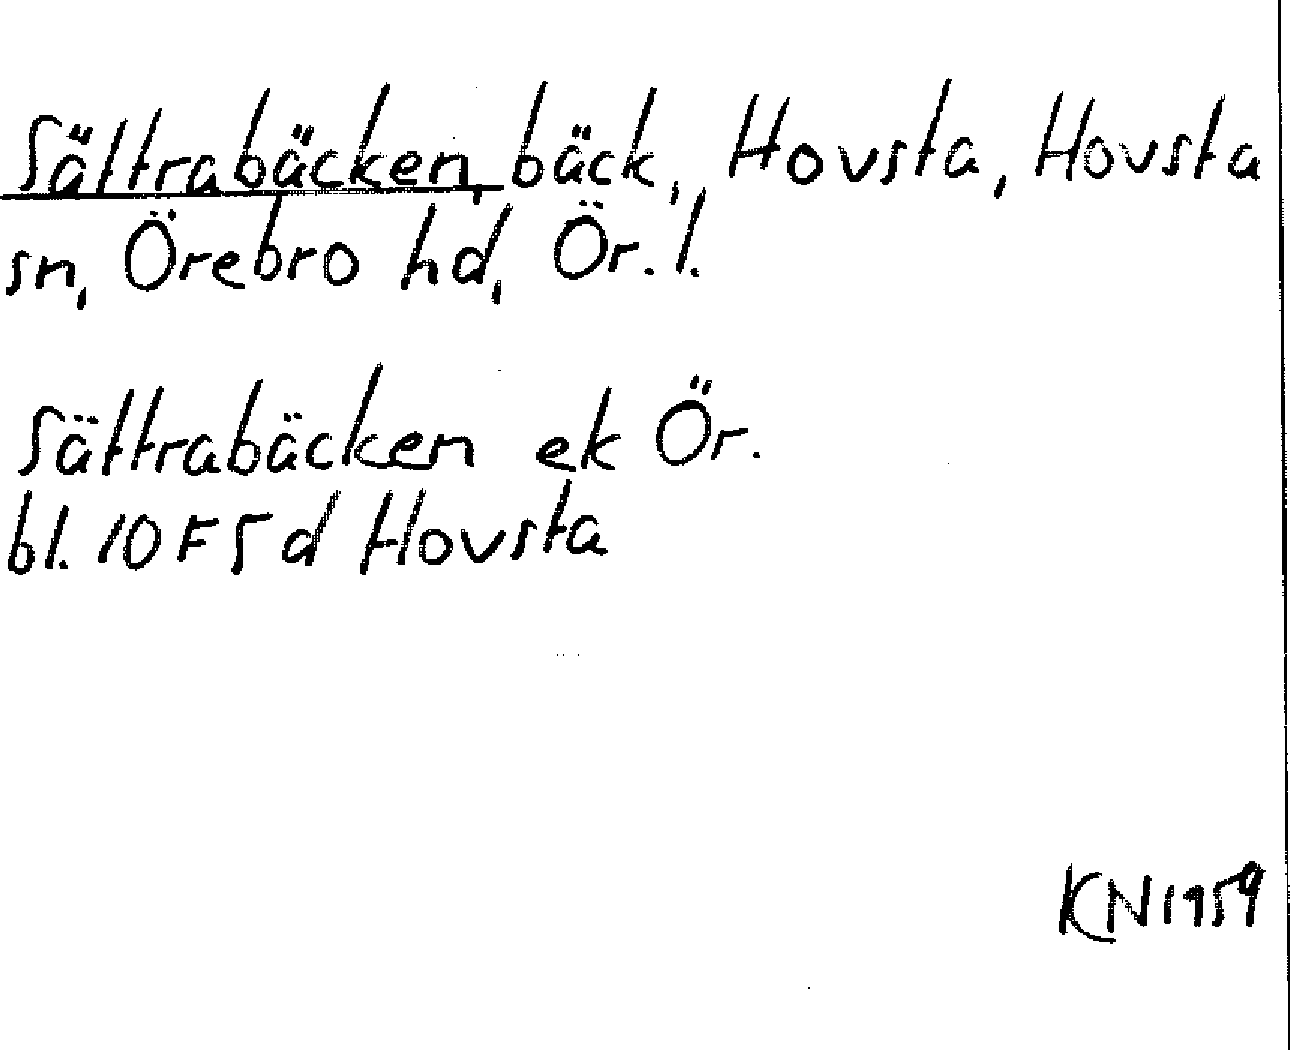 Sättrabäcken, bäck, Hovsta, Hovsta
sn, Örebro hd, Ör. l.
Sättrabäcken ek Ör.
bl. 10 F 5 d Hovsta
KN 1959